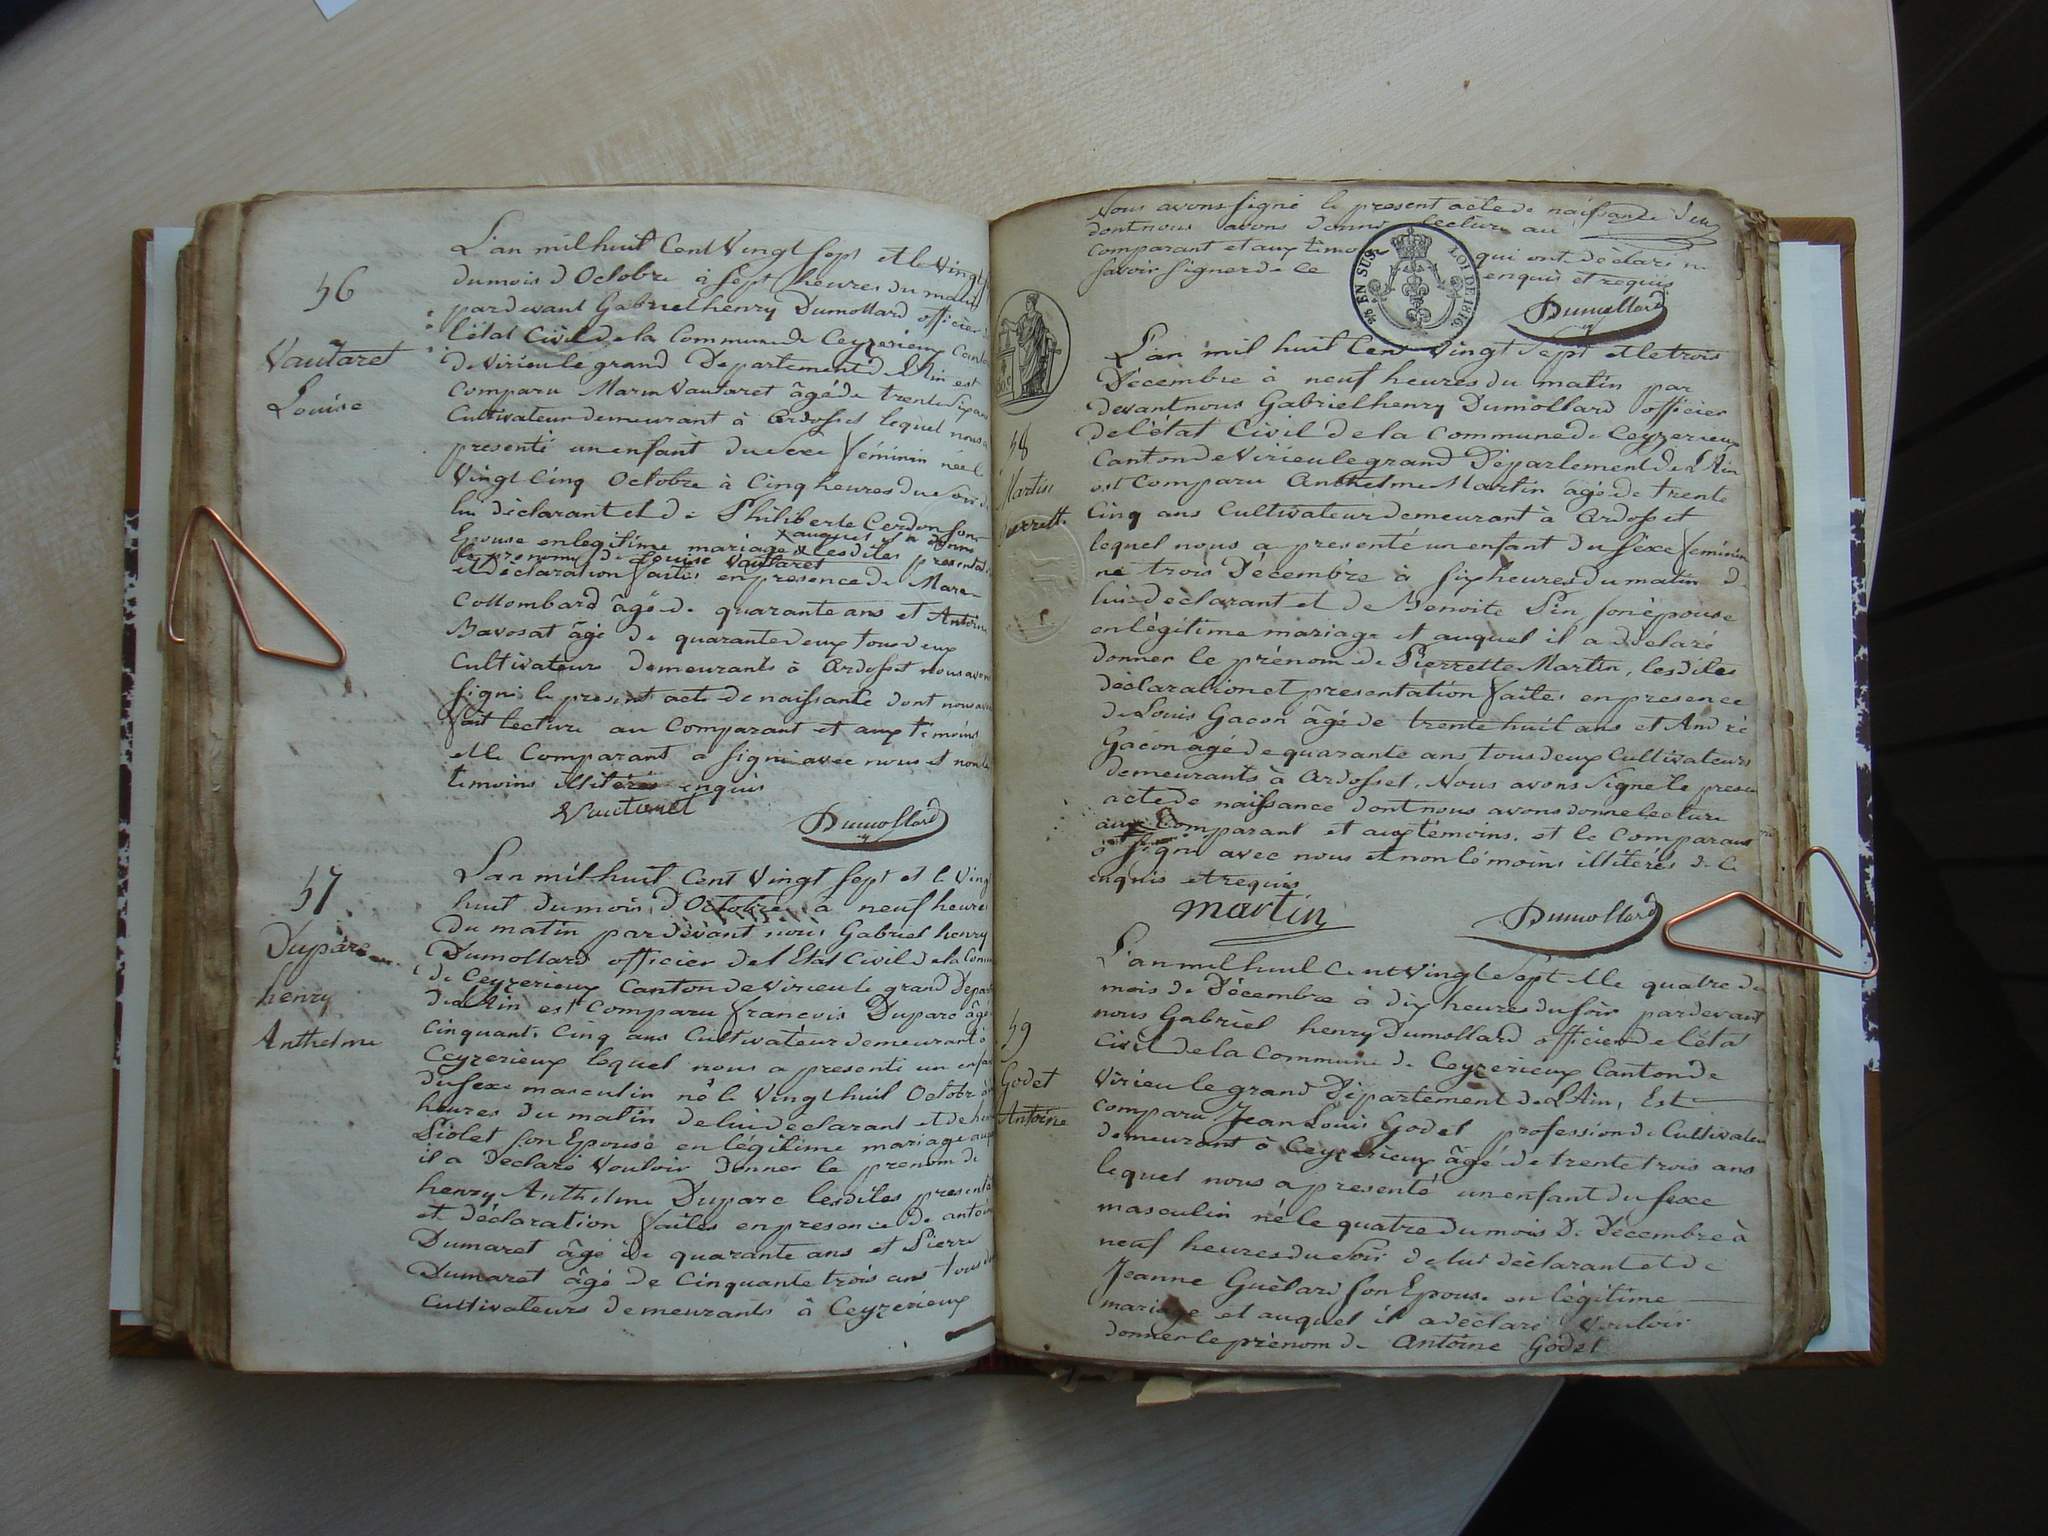 56
Vautaret
Louise
L'an mil huit Cent Vingt Sept et le Vingt
du mois d'Octobre à Sept heures du matin
par devant Gabriel henry Dumollard officier
l'état Civil de la Commune de Ceyzerieux Canton
de Virieu le grand Département de l'Ain est
Comparu Marin Vautaret âgé de trente Six ans
Cultivateur demeurant à Ardosset lequel nous a
presenté un enfant du sexe féminin née le
Vingt Cinq Octobre à Cinq heures du Soir de
lui déclarant et de Philiberte Cerdon son
Epouse en legitime mariage & auquel il a donné
le prenom de Louise Vautaret Lesdites presentation
et Déclaration faites en presence de Marc
Collombard âgé de quarante ans et Antoine
Bavosat âgé de quarante deux tous deux
Cultivateurs demeurants à Ardosset nous avons
signé le present acte de naissance dont nous avons
fait lecture au Comparant et aux témoins
et le Comparant a signé avec nous et non les
temoins illiterés enquis
Vautaret
Dumollard
57
Duparc
henry
Anthelme
L'an mil huit Cent Vingt Sept et le Vingt
huit du mois d'Octobre à neuf heures
du matin par dèvant nous Gabriel henry
Dumollard officier de l'Etat Civil de la Commune
de Ceyzerieux Canton de Virieu le grand Départ
de l'Ain est Comparu francois Duparc âgé
Cinquante Cinq ans Cultivateur demeurant à
Ceyzerieux lequel nous a presenté un enfant
du sexe masculin né le Vingt huit Octobre à
heures du matin de lui declarant et de
Piolet son Epouse en légitime mariage auquel
il a declaré Vouloir donner le prenom de
henry Anthelme Duparc lesdites presentation
et déclaration faites en presence de antoine
Dumaret âgé de quarante ans et Pierre
Dumaret âgé de Cinquante trois ans tous deux
Cultivateurs demeurants à Ceyzerieux
Nous avons signé le present acte de naissance
dont nous avons donné lecture au
Comparant et aux témoins qui ont déclaré ne
savoir signer de ce enquis et requis
EN SUS
LOI DE 1816
Dumollard
58
Martin
pierrette
L'an mil huit Cent Vingt Sept et le trois
Décembre à neuf heures du matin par
devant nous Gabriel henry Dumollard officier
de l'état Civil de la Commune de Ceyzerieux
Canton de Virieu le grand Département de l'Ain
est Comparu Anthelme Martin âgé de trente
Cinq ans Cultivateur demeurant à Ardosset
lequel nous a presenté un enfant du sexe féminin
né trois Décembre à six heures du matin de
lui déclarant et de Benoite Pin son épouse
en légitime mariage et auquel il a déclaré
donner le prénom de Pierrette Martin, lesdites
déclaration et presentation faites en presence
de Louis Gacon âgé de trente huit ans et André
Gacon âgé de quarante ans, tous deux Cultivateurs
demeurants à Ardosset. Nous avons Signé le present
acte de naissance dont nous avons donné lecture
aux Comparant et aux témoins, et le Comparant
a signé avec nous et non témoins illiterés de ce
enquis et requis
martin
Dumollard
59
Godet
Antoine
L'an mil huit Cent Vingt Sept et le quatre du
mois de Décembre à dix heures du soir par devant
nous Gabriel henry Dumollard officier de l'état
Civil de la Commune de Ceyzerieux Canton de
Virieu le grand Département de L'Ain, Est
comparu Jean Louis Godet profession de Cultivateur
demeurant à Ceyzerieux âgé de trente trois ans
lequel nous a presenté un enfant du sexe
masculin né le quatre du mois de Décembre à
neuf heures du Soir de lui déclarant et de
Jeanne Guélard son Epouse en légitime
mariage et auquel il a déclaré Vouloir
donner le prénom de Antoine Godet